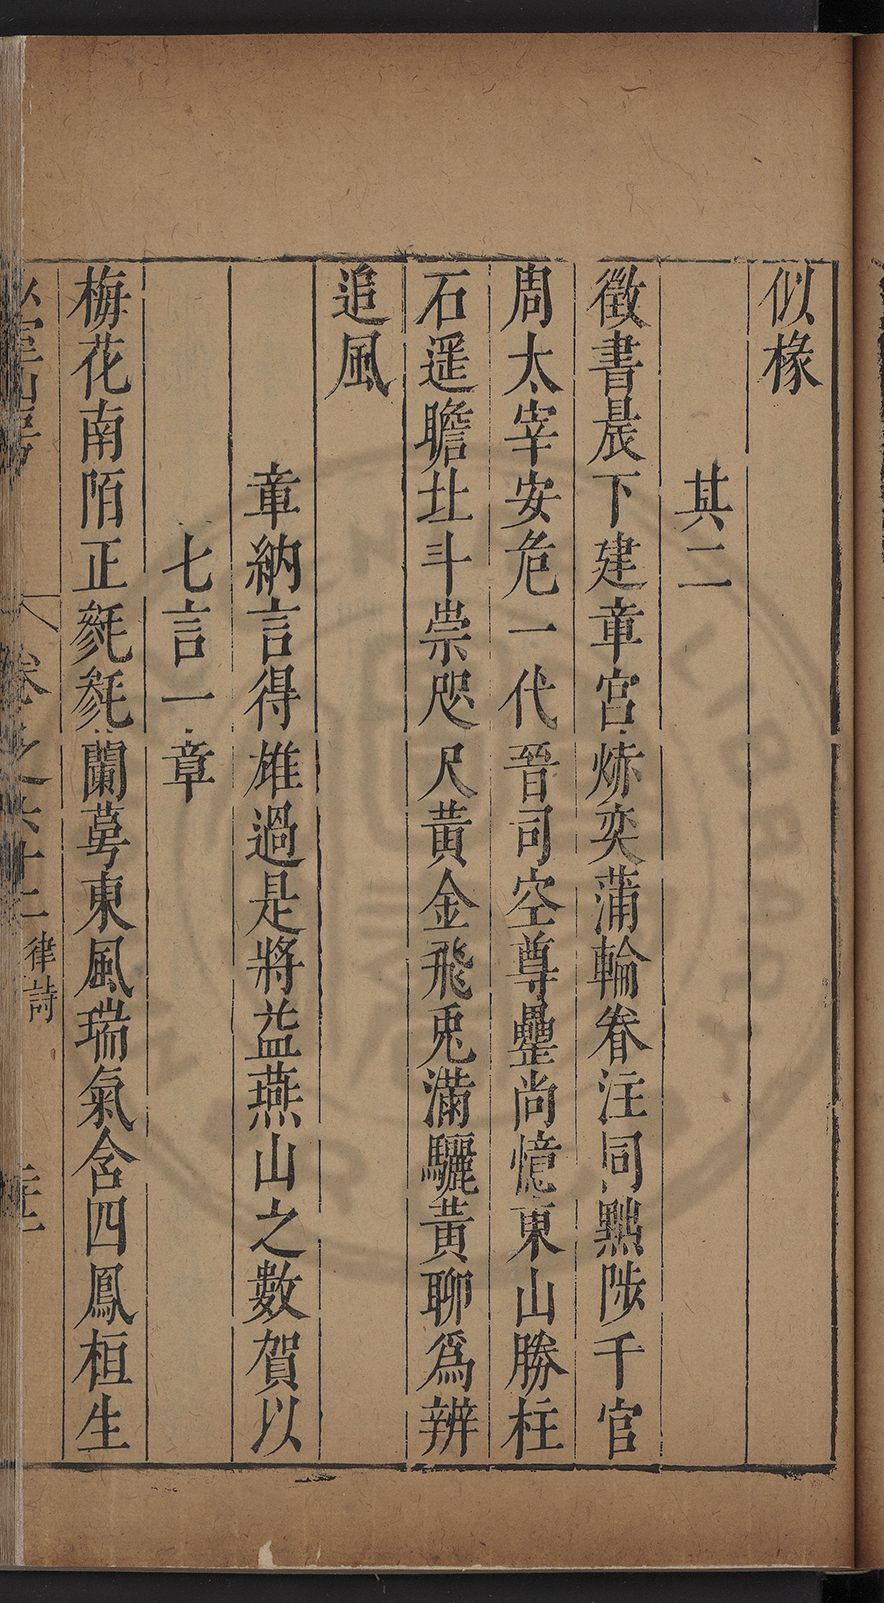 似椽
其二
徵書晨下建章宮焃奕蒲輪眷注同黜陟千官
周太宰安危一代晉司空尊罍尚憶東山勝柱
石遥瞻北斗崇咫尺黃金飛兎滿驪黃聊爲辨
追風
章納言得雄過是將益燕山之數賀以
七言一章
梅花南陌正毿毿蘭蕚東風瑞氣含四鳳桓生
卷之六十二 律詩